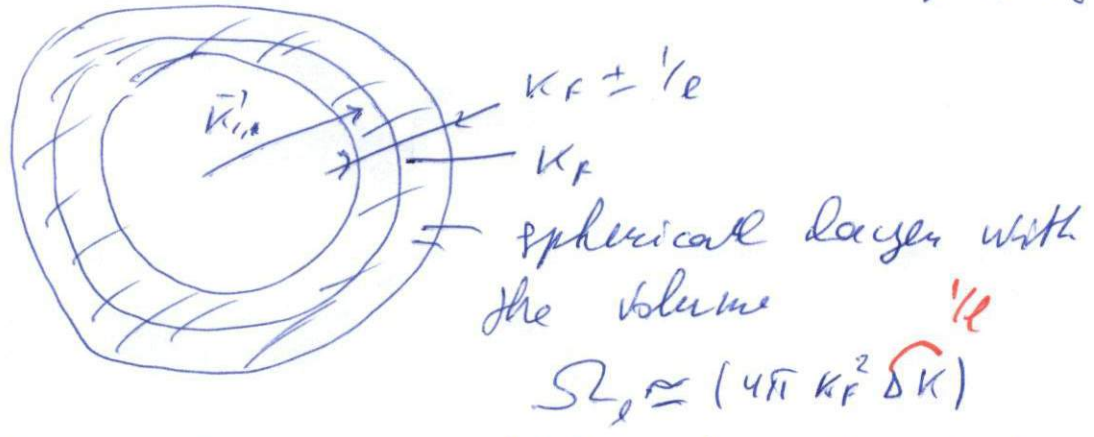 k⃗₁
k_F ± 1/ℓ
k_F
spherical layer with
the volume
1/ℓ
Ω_ℓ ≃ (4π k_F² Δk)